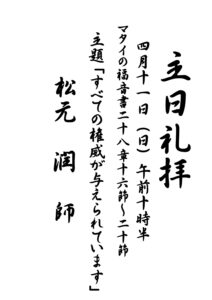 主日礼拝
四月十一日（日）午前十時半
マタイの福音書二十八章十六節～二十節
主題「すべての権威が与えられています」
松元　潤　師